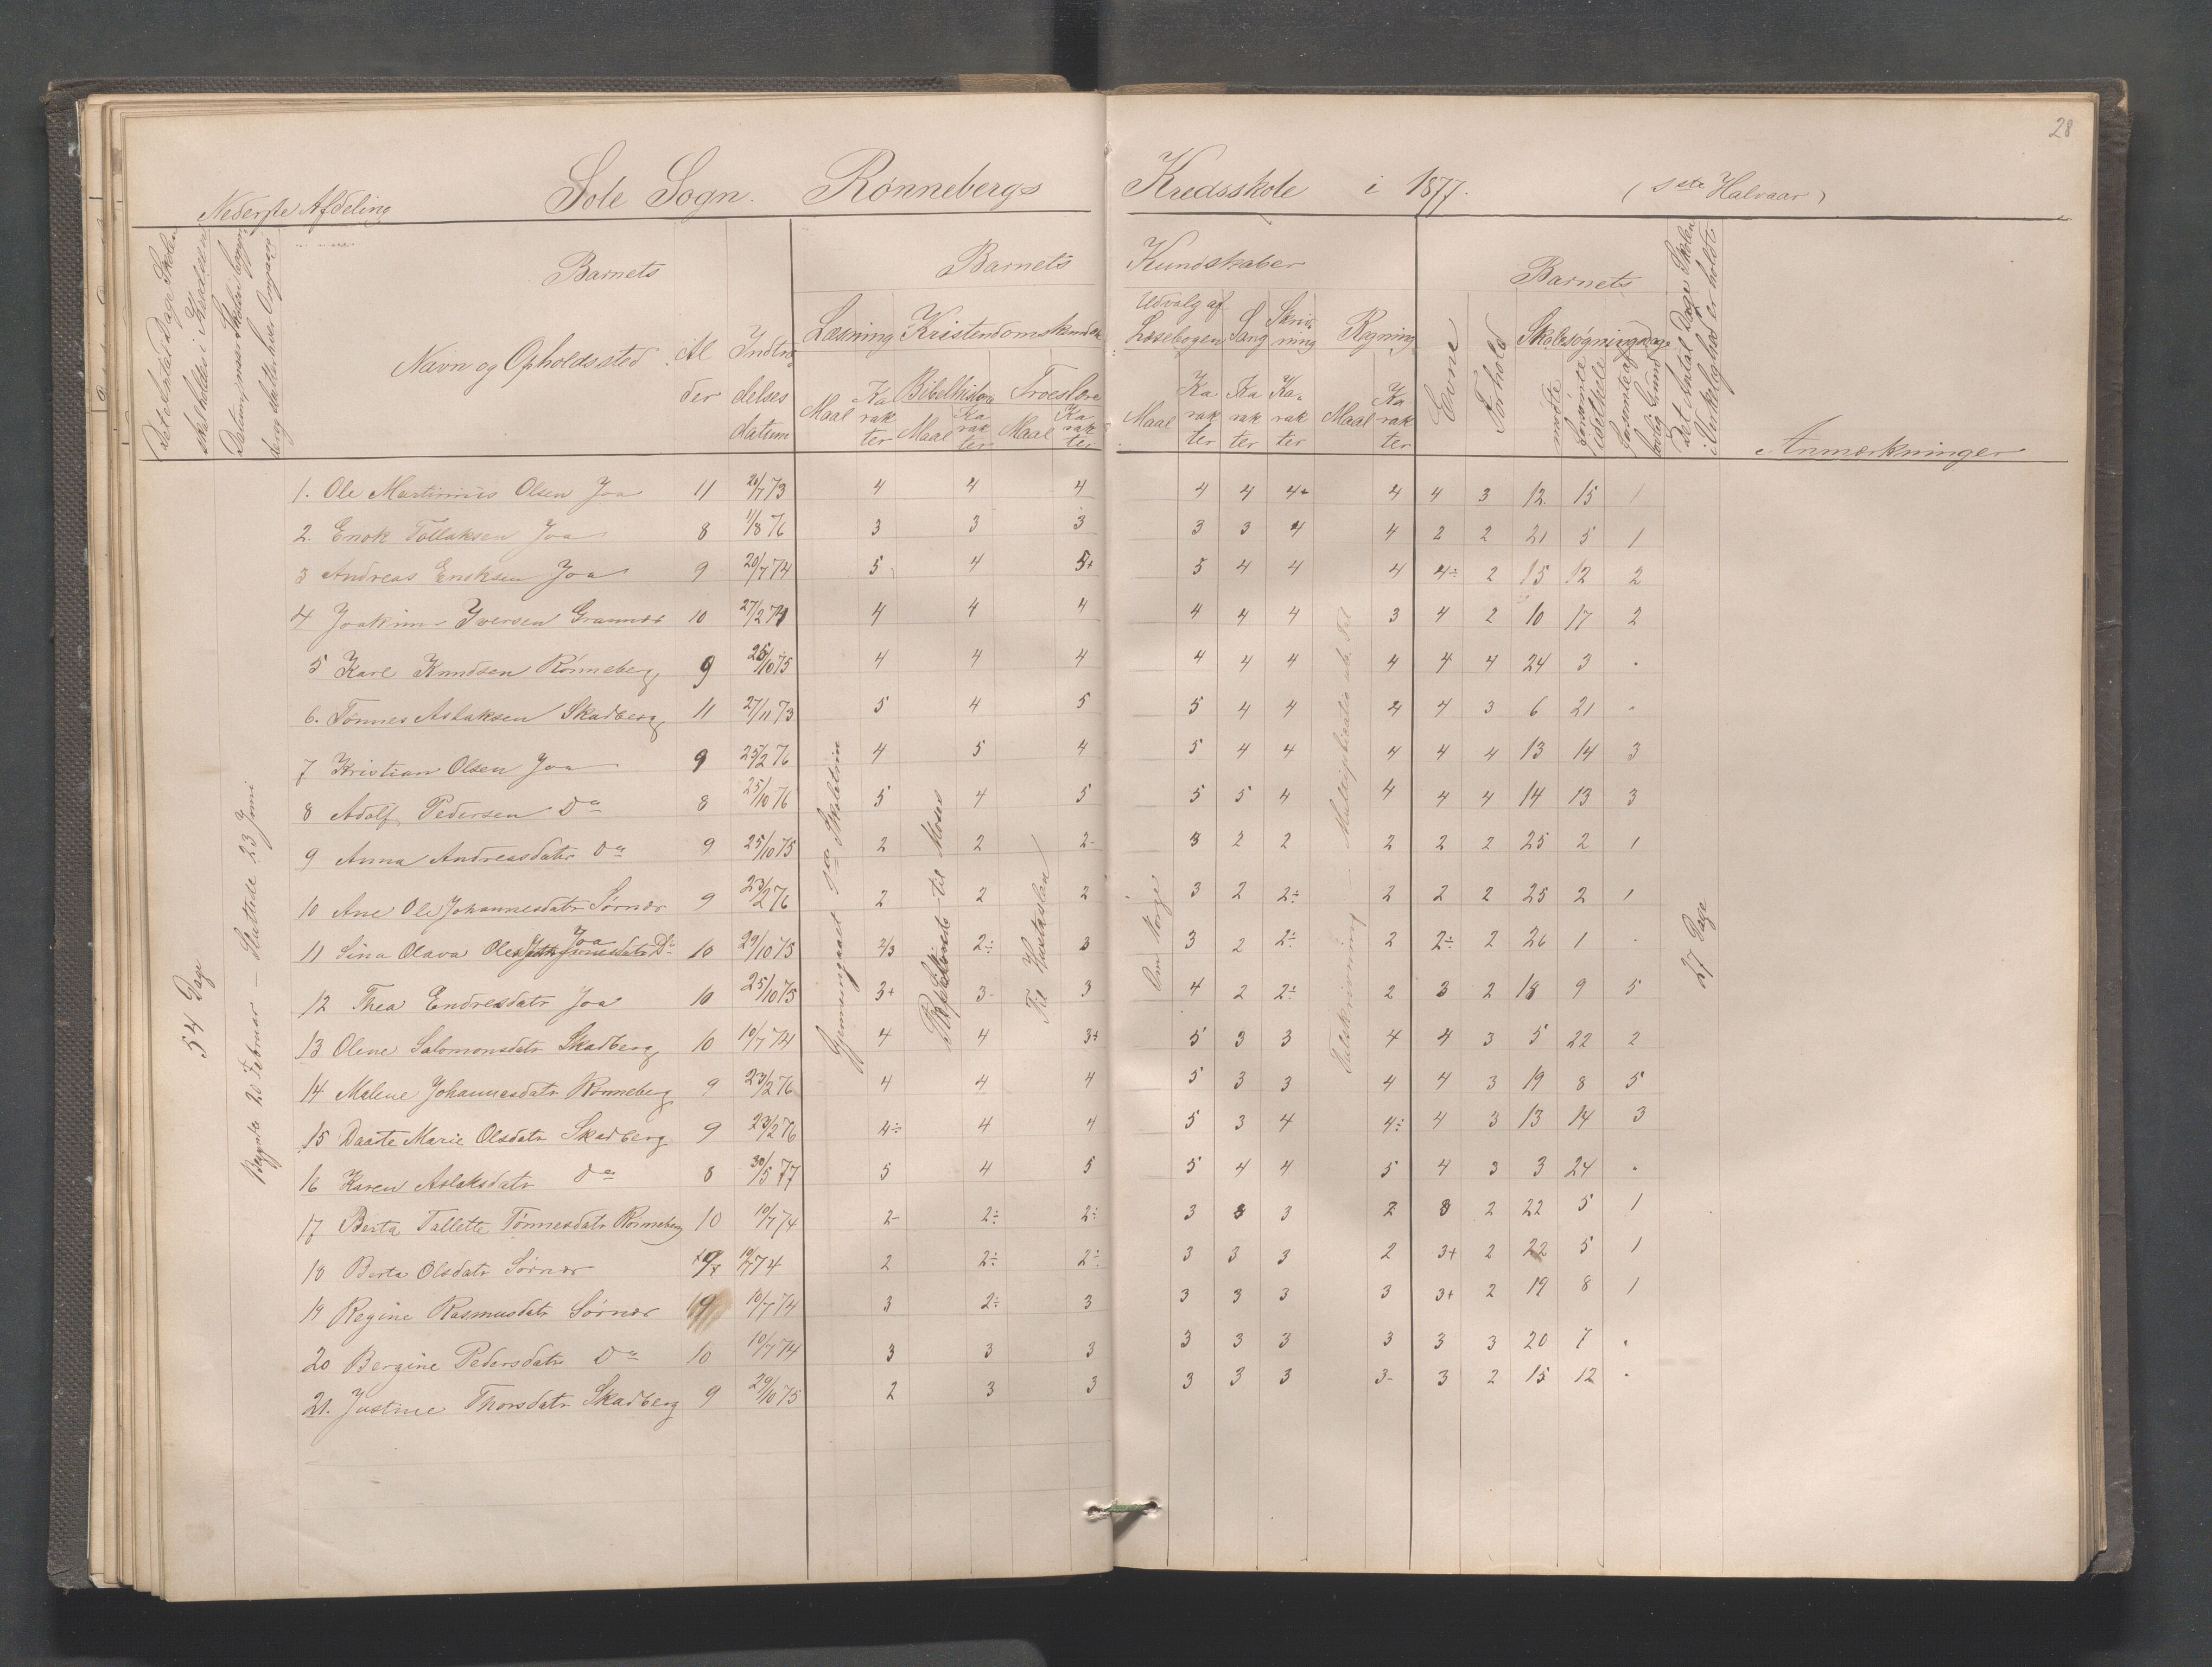 28
Sole Sogn. Rønnebergs Kredsskole i 1877. (1ste Halvaar)
Nederste Afdeling
Det Antal Dage Skolen skal holdes i Kredsen
Datum, naar Skolen begyn
Barnets
Barnets Kundskaber
Barnets
Det Antal Dage Skolen i Virkelighed er holdt
Anmærkninger
Navn og Opholdssted
Al der
Indtræ delses datum
Læsning Kristendomskundskab
Bibelhistorie Troeslære
Udvalg af Læsebogen Sang Skrivning Regning
Evne Forhold Skolesøgningsdage
mødte forsømte idethele forsømte af lovlig Grund
Maal Karakter Maal Karakter Maal Karakter
Maal Karakter Karakter Karakter Maal Karakter
54 Dage
Begyndte 20 Februar — Sluttede 23 Juni
Gjennemgaaet 1ste Skoletrin
til Moses
Om Norge
Talskrivning — Multiplication ub. Tal
27 Dage
1. Ole Martinius Olsen Joa 11 20/7 73 4 4 4 4 4 4+ 4 4 3 12 15 1
2. Enok Tollaksen Joa 8 1/8 76 3 3 3 3 3 4 4 2 2 21 5 1
3 Andreas Eriksen Joa 9 20/7 74 5 4 5+ 5 4 4 4 4÷ 2 15 12 2
4 Joakim Iversen Grannes 10 27/2 74 4 4 4 4 4 4 3 4 2 10 17 2
5 Karl Knudsen Rønneberg 9 25/10 75 4 4 4 4 4 4 4 4 4 24 3 .
6. Tønnes Aslaksen Skadberg 11 27/11 73 5 4 5 5 4 4 4 4 3 6 21 .
7 Kristian Olsen Joa 9 25/2 76 4 5 4 5 4 4 4 4 4 13 14 3
8 Adolf Pedersen Do 8 25/10 76 5 4 5 5 5 4 4 4 4 14 13 3
9 Anna Andreasdatr do 9 25/10 75 2 2 2- 3 2 2 2 2 2 25 2 1
10 Ane Ole Johannesdatr Sørnes 9 23/2 76 2 2 2 3 2 2÷ 2 2 2 25 2 1
11 Sina Olava Ole Joa Do 10 29/10 75 2/3 2÷ 3 3 2 2÷ 2 2÷ 2 26 1 .
12 Thea Endresdatr Joa 10 25/10 75 3+ 3- 3 4 2 2÷ 2 3 2 18 9 5
13 Olene Salomonsdatr Skadberg 10 10/7 74 4 4 3+ 5 3 3 4 4 3 5 22 2
14 Malene Johannesdatr Rønneberg 9 23/2 76 4 4 4 5 3 3 4 4 3 19 8 5
15 Daate Marie Olsdatr Skadberg 9 23/2 76 4÷ 4 4 5 3 4 4÷ 4 3 13 14 3
16 Karen Aslaksdatr do 8 30/5 77 5 4 5 5 4 4 5 4 3 3 24 .
17 Berta Tallette Tønnesdatr Rønneberg 10 10/7 74 2- 2÷ 2÷ 3 3 3 2 3 2 22 5 1
18 Berta Olsdatr Sørnes 10/7 74 2 2÷ 2÷ 3 3 3 2 3+ 2 22 5 1
19 Regine Rasmusdatr Sørnes 9 10/7 74 3 2÷ 3 3 3 3 3 3+ 2 19 8 1
20 Bergine Pedersdatr Do 10 10/7 74 3 3 3 3 3 3 3 3 3 20 7 .
21. Justine Thorsdatr Skadberg 9 29/10 75 2 3 3 3 3 3 3- 3 2 15 12 .